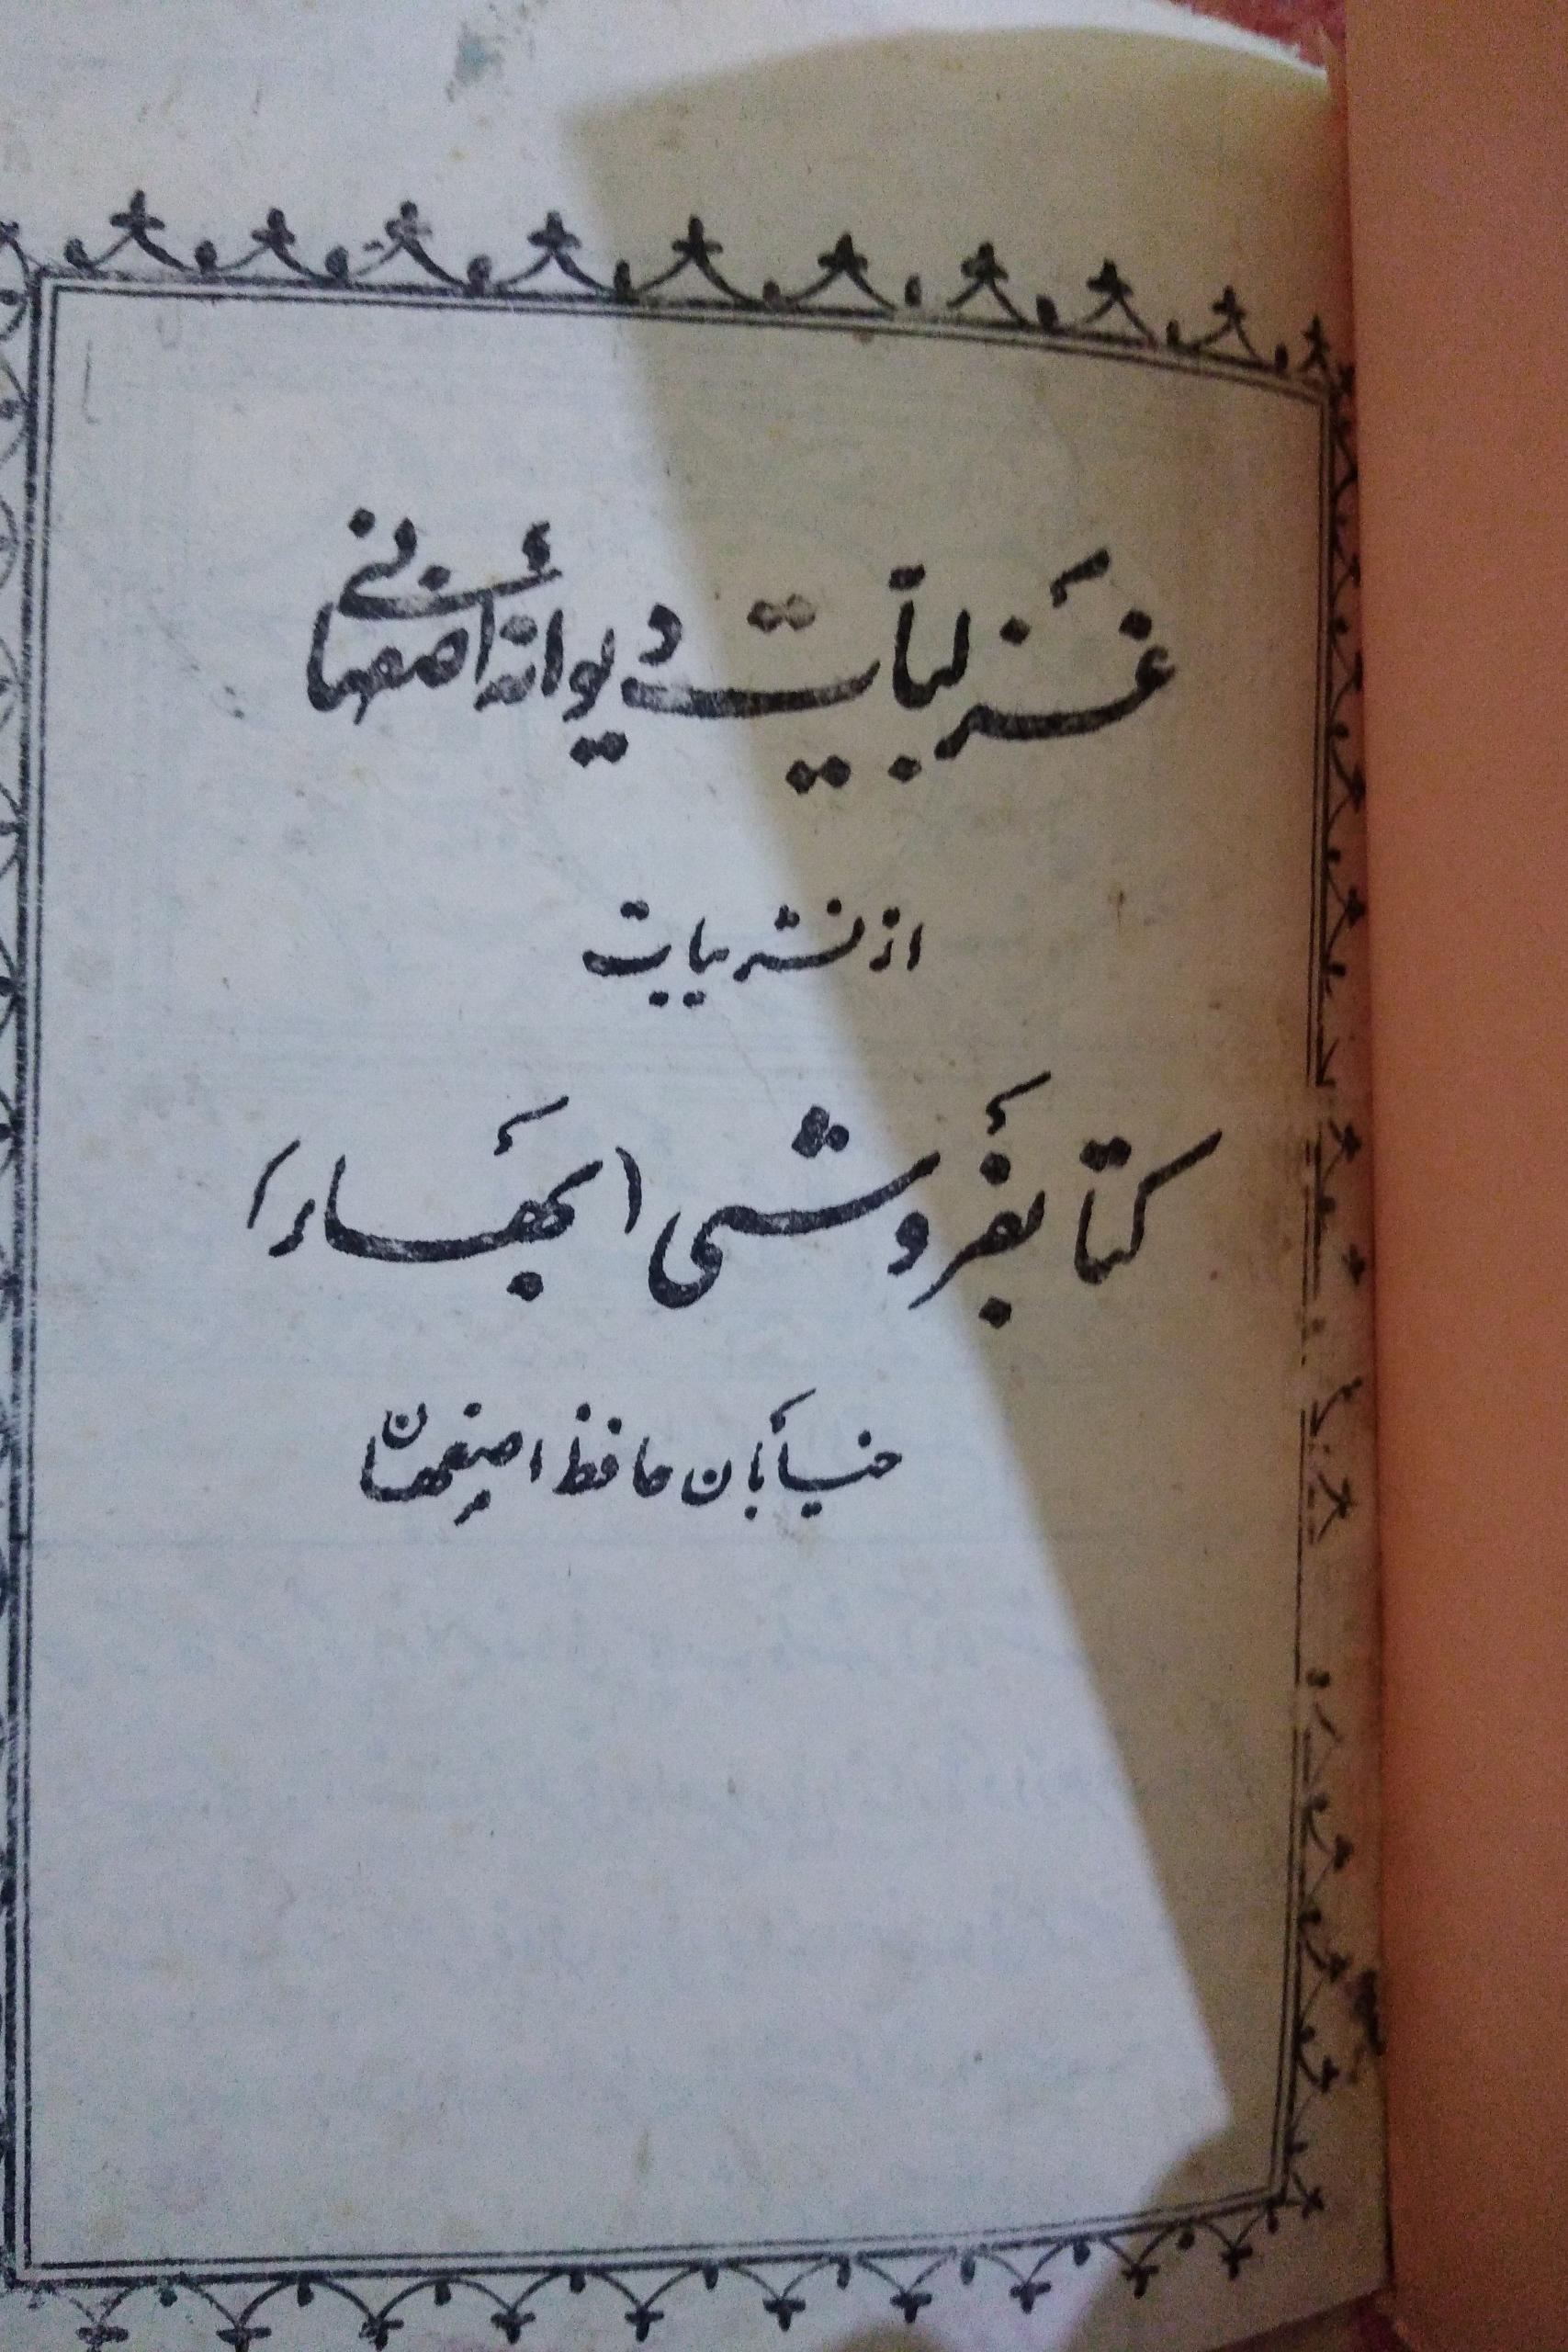 غزلیات دیوانه اصفهانی
از نشریات
کتابفروشی
خیابان حافظ اصفهان